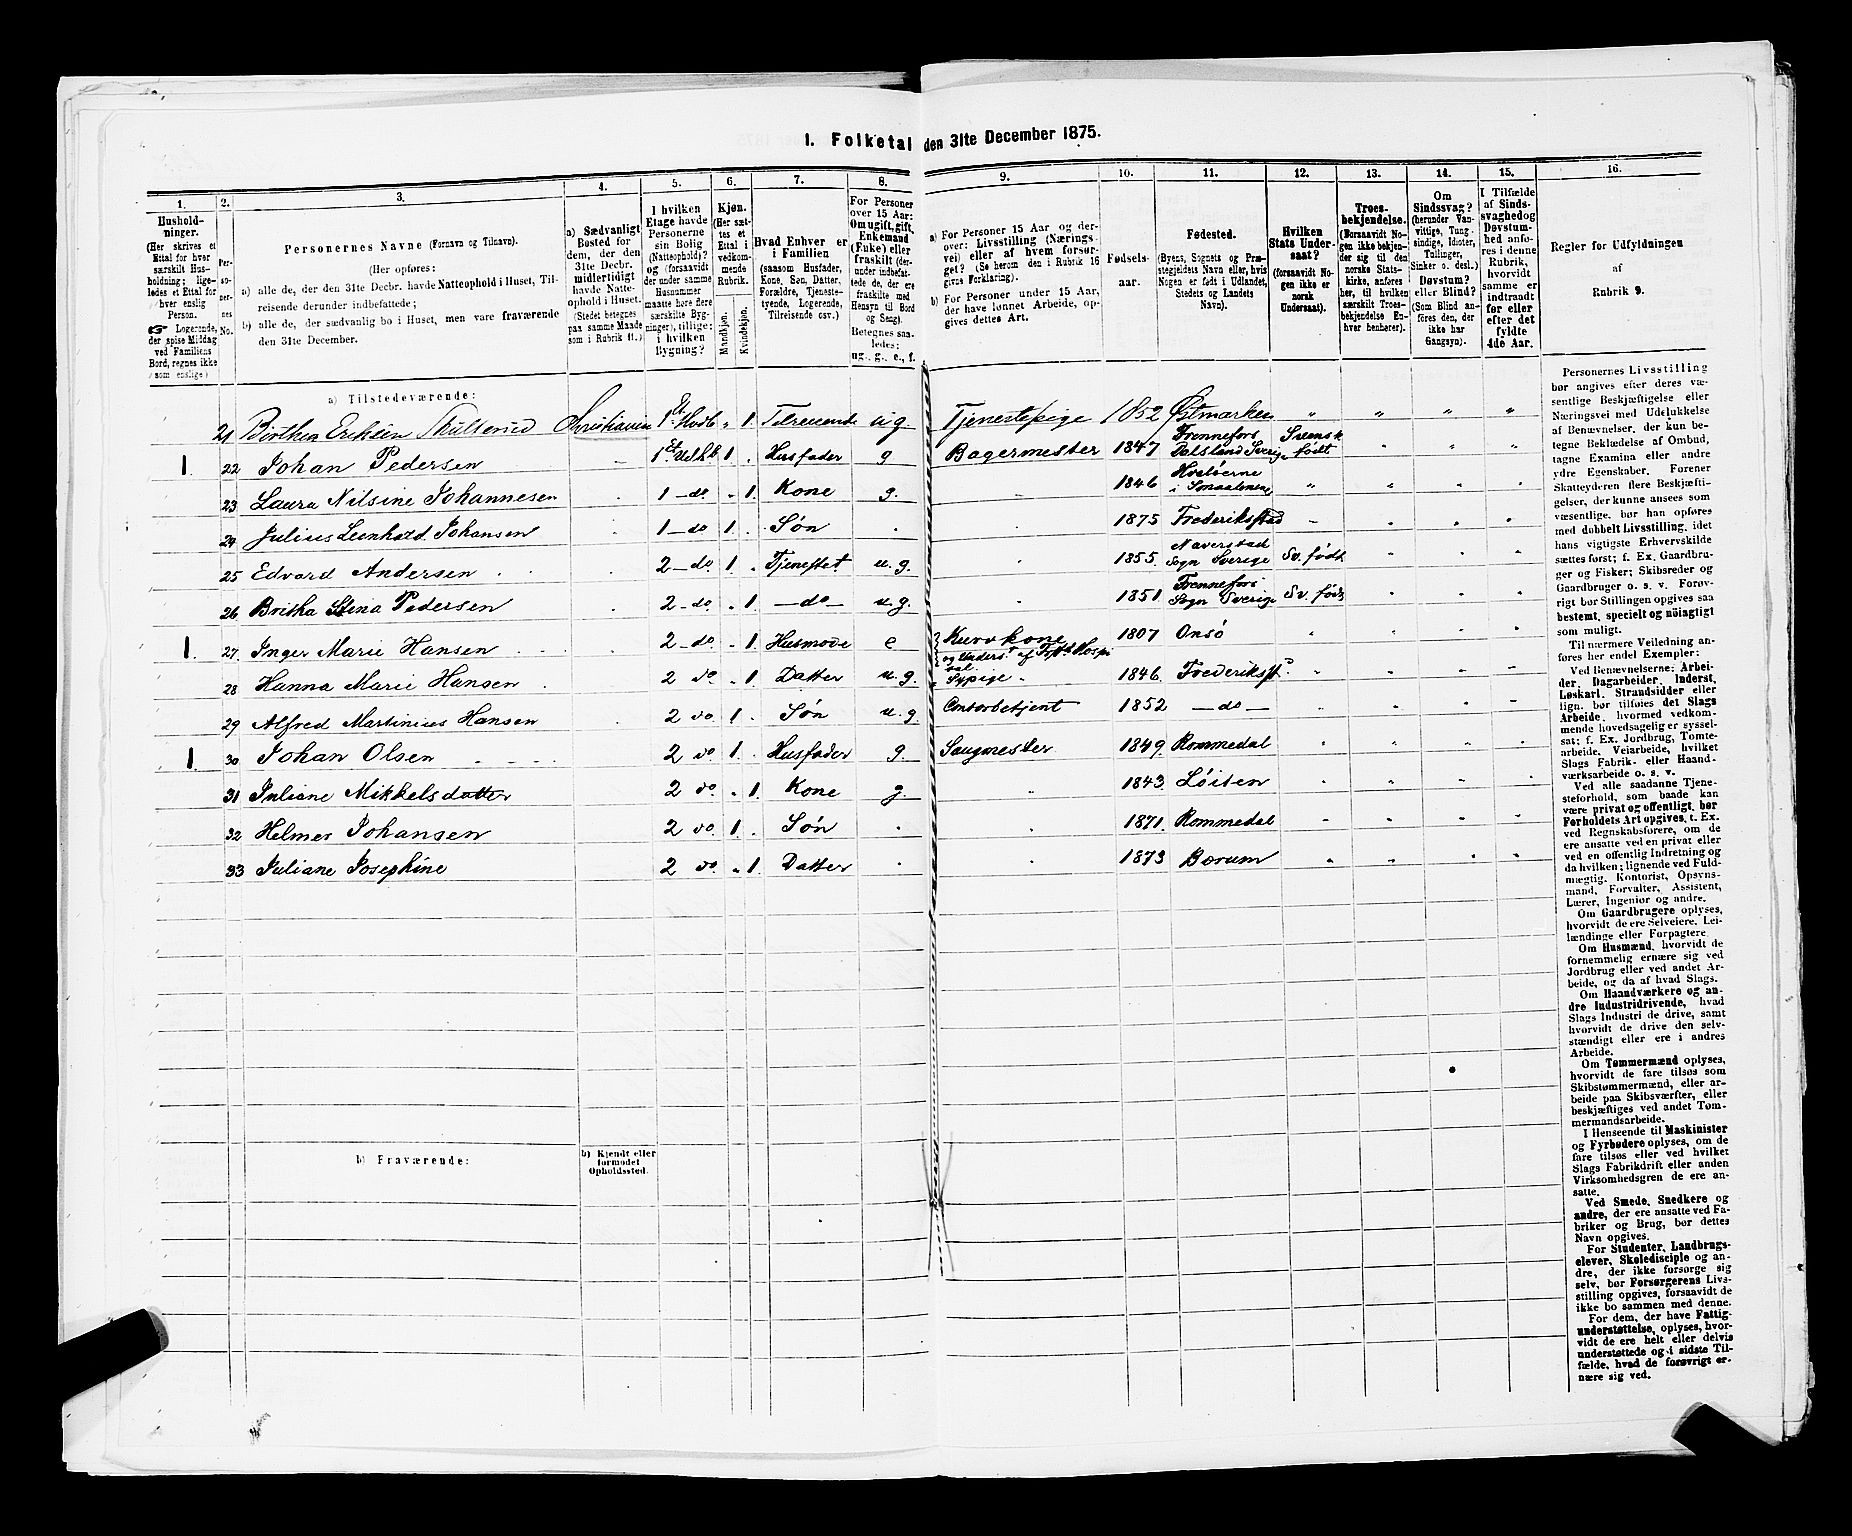 I. Folketal den 31te December 1875.
1. 2. 3. 4. 5. 6. 7. 8. 9. 10. 11. 12. 13. 14. 15. 16.
Hushold-
ninger.
(Her skrives et
Ettal for hver
særskilt Hus-
holdning; lige-
ledes et Ettal for
hver enslig
Person.
☞ Logerende,
der spise Middag
ved Familiens
Bord, regnes ikke
som enslige.)
Per-
so-
ner-
nes
No.
Personernes Navne (Fornavn og Tilnavn).
(Her opføres:
a) alle de, der den 31te Decbr. havde Natteophold i Huset, Til-
reisende derunder indbefattede;
b) alle de, der sædvanlig bo i Huset, men vare fraværende
den 31te December.
a) Sædvanligt
Bosted for
dem, der den
31te Decbr.
midlertidigt
havde Natte-
ophold i Huset.
(Stedet betegnes
paa samme Maade
som i Rubrik 11.)
I hvilken
Etage havde
Personerne
sin Bolig
(Natteophold)?
og (forsaavidt
der under samme
Husnummer
maatte høre flere
særskilte Byg-
ninger), tillige:
i hvilken
Bygning?
Kjøn.
(Her sæt-
tes et
Ettal i
vedkom-
mende
Rubrik.
Mandkjøn.
Kvindekjøn.
Hvad Enhver er
i Familien
(saasom Husfader,
Kone, Søn, Datter,
Forældre, Tjeneste-
tyende, Logerende,
Tilreisende osv.)
For Personer
over 15 Aar:
Om ugift, gift,
Enkemand
(Enke) eller
fraskilt (der-
under indbefat-
tede de, der ere
fraskilte med
Hensyn til Bord
og Seng).
Betegnes saa-
ledes:
ug., g., e., f.
a) For Personer 15 Aar og der-
over: Livsstilling (Nærings-
vei) eller af hvem forsør-
get? (Se herom den i Rubrik 16
givne Forklaring).
b) For Personer under 15 Aar,
der have lønnet Arbeide, op-
gives dettes Art.
Fødsels-
aar.
Fødested.
(Byens, Sognets og Præ-
stegjeldets Navn eller, hvis
Nogen er født i Udlandet,
Stedets og Landets
Navn).
Hvilken
Stats Under-
saat?
(forsaavidt No-
gen ikke er
norsk
Undersaat).
Troes-
bekjendelse.
(Forsaavidt No-
gen ikke bekjen-
der sig til den
norske Stats-
kirke, anføres
her, til hvilken
særskilt Troes-
bekjendelse En-
hver henhører).
Om
Sindssvag?
(herunder Van-
vittige, Tung-
sindige, Idioter,
Tullinger,
Sinker o. desl.)
Døvstum?
eller Blind?
(Som Blind an-
føres den, der
ikke har
Gangsyn).
I Tilfælde
af Sinds-
svaghed og
Døvstum-
hed anfø-
res i denne
Rubrik,
hvorvidt
samme er
indtraadt
før eller
efter det
fyldte
4de Aar.
Regler for Udfyldningen
af
Rubrik 9.
a) Tilstedeværende:
21 Birthea Eriksen Christiania 1 1. Tilreisende ug Tjenestepige 1852 Østmarken " " " "
1. 22 Johan Pedersen 1 1. Husfader g Bagermester 1847 Frennefors Dalsland Sverige Svensk født
23 Laura Nilsine Johannesen 1 – do " 1 Kone g. 1846 Hvaløerne
24 Julius Leonhard Johansen 1 – do 1. Søn 1875 Frederikstad
25 Edvard Andersen 2 – do 1. Tjenestet u.g. 1855. Naverstad Sogn Sverige Sv. født
26 Britha Stina Pedersen 2 – do " 1. – do – u.g. 1851. Frennefors Sogn Sverige Sv. født
1. 27. Inger Marie Hansen 2 – do " 1 Husmode e 1807 Onsø
28 Hanna Marie Hansen 2 do " 1 Datter u.g. Sypige 1846. Frederikst
29 Alfred Martinius Hansen 2 do 1. Søn u.g Contorbetjent 1852 – do –
1. 30 Johan Olsen 2 do 1. Husfader g. Saugmester 1849. Rommedal
31 Juliane Mikkelsdatter 2 do " 1. Kone g. 1843. Løiten
32 Helmer Johansen 2 do 1. Søn 1871. Rommedal
33 Juliane Josephine 2 do " 1. Datter 1873 Bærum
b) Fraværende:
b) Kjendt eller
formodet
Opholdssted.
Personernes Livsstilling
bør angives efter deres væ-
sentlige Beskjæftigelse eller
Næringsvei med Udelukkelse
af Benævnelser, der kun be-
tegne Beklædelse af Ombud,
tagne Examina eller andre
ydre Egenskaber. Forener
Skatteyderen flere Beskjæfti-
gelser, der kunne ansees som
væsentlige, bør han opføres
med dobbelt Livsstilling, idet
hans vigtigste Erhvervskilde
sættes først; f. Ex. Gaardbru-
ger og Fisker; Skibsreder og
Gaardbruger o. s. v. Forøv-
rigt bør Stillingen opgives saa
bestemt, specielt og nøiagtigt
som muligt.
Til nærmere Veiledning an-
føres her endel Exempler:
Ved Benævnelserne: Arbei-
der, Dagarbeider, Inderst,
Løskarl, Strandsidder eller
lign. bør tilføies det Slags
Arbeide, hvormed vedkom-
mende hovedsagelig er syssel-
sat; f. Ex. Jordbrug, Tomte-
arbeide, Veiarbeide, hvilket
Slags Fabrik- eller Haand-
værksarbeide o. s. v.
Ved alle saadanne Tjen-
esteforhold, som baade kan
være privat og offentligt, bør
Forholdets Art opgives, t. Ex.
ved Regnskabsførere, om de
ere ansatte ved en privat eller
ved en offentlig Indretning og
da hvilken; lignende ved Fuld-
mægtig, Kontorist, Opsyns-
mand, Forvalter, Assistent,
Lærer, Ingeniør og andre.
Om Gaardbrugere oplyses,
hvorvidt de ere Selveiere, Lei-
lændinge eller Forpagtere.
Om Husmænd, hvorvidt de
fornemmelig ernære sig ved
Jordbrug eller ved andet Ar-
beide, og da af hvad Slags.
Om Haandværkere og an-
dre Industridrivende, hvad
Slags Industri de drive, samt
hvorvidt de drive den selv-
stændigt eller ere i andres
Arbeide.
Om Tømmermænd oplyses,
hvorvidt de fare tilsøs som
Skibstømmermænd, eller ar-
beide paa Skibsværfter, eller
beskjæftiges ved andet Tøm-
mermandsarbeide.
I Henseende til Maskinister
og Fyrbødere oplyses, om de
fare tilsøs eller ved hvilket
Slags Fabrikdrift eller anden
Virksomhedsgren de ere an-
satte.
Ved Smede, Snedkere og
andre, der ere ansatte ved Fa-
briker og Brug, bør dettes
Navn opgives.
For Studenter, Landbrugs-
elever, Skoledisciple og an-
dre, der ikke forsørge sig
selv, bør Forsørgerens Livs-
stilling opgives, forsaavidt de
ikke bo sammen med denne.
For dem, der have Fattig-
understøttelse, oplyses, hvor-
vidt de ere helt eller delvis
understøttede og i sidste Til-
fælde, hvad de forøvrigt er-
nære sig ved.